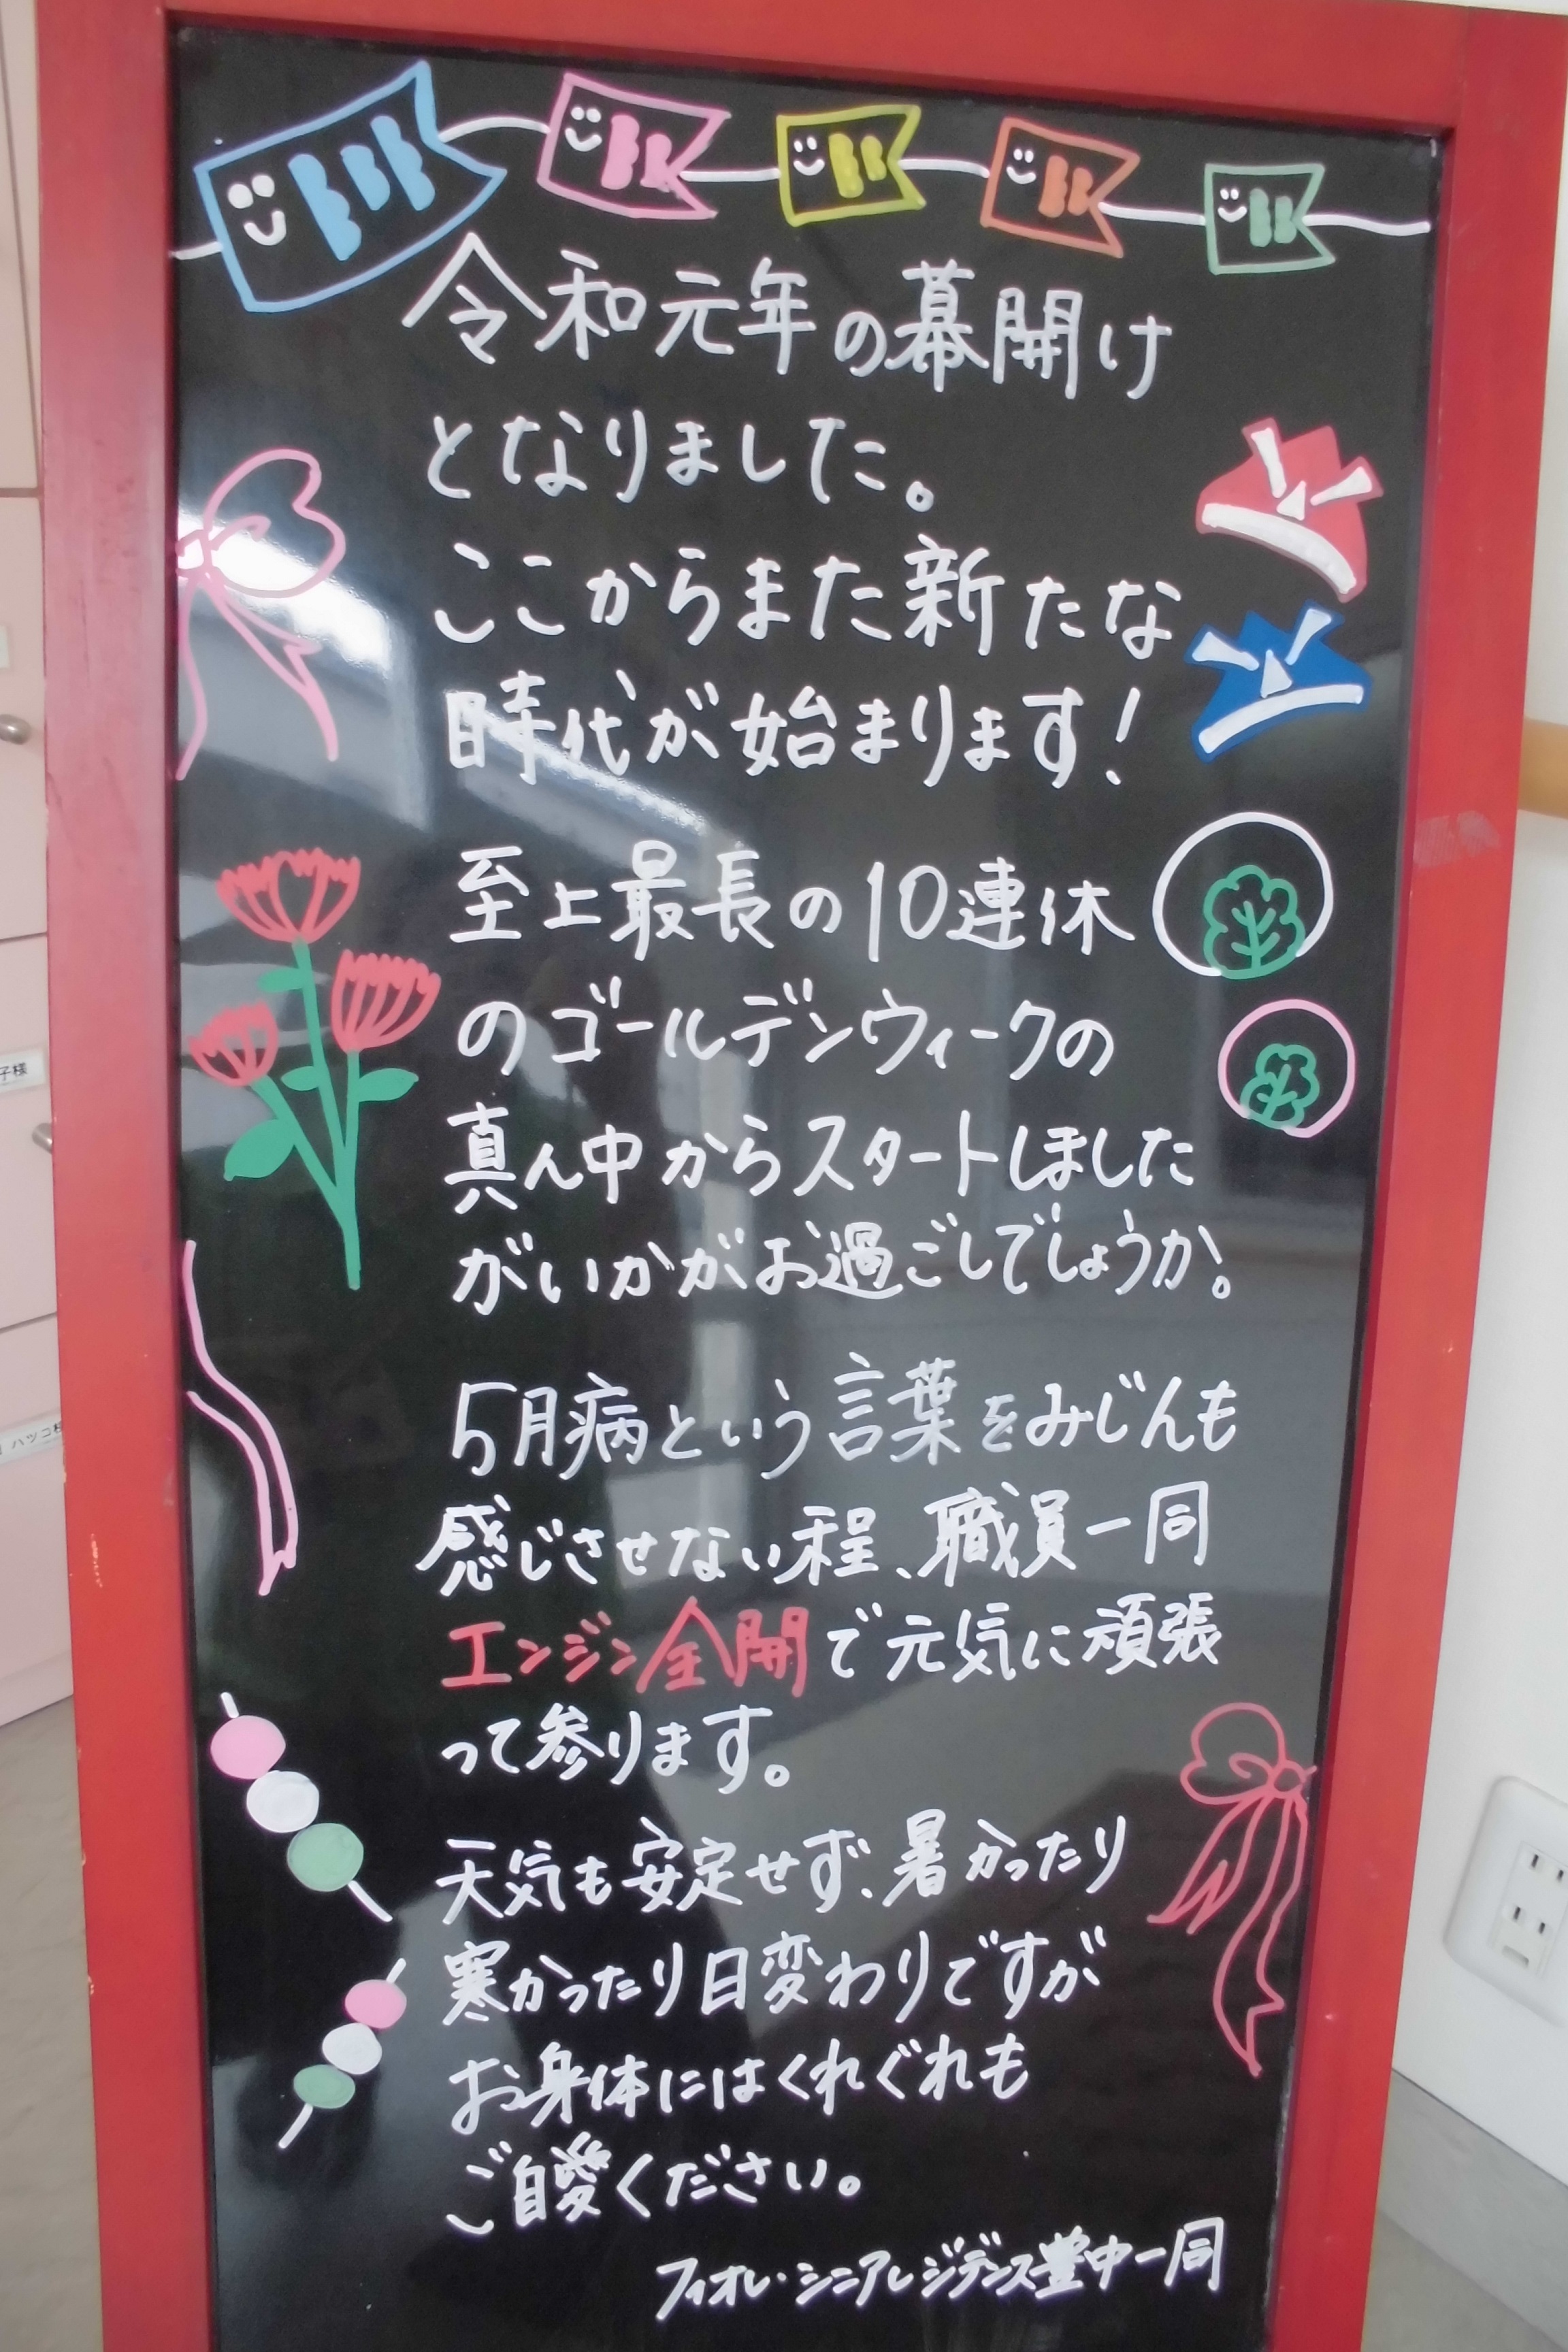 令和元年の幕開け
となりました。
ここからまた新たな
時代が始まります!
至上最長の10連休
のゴールデンウィークの
真ん中からスタートしました
がいかがお過ごしでしょうか。
5月病という言葉をみじんも
感じさせない程、職員一同
エンジン全開で元気に頑張
って参ります。
天気も安定せず、暑かったり
寒かったり日変わりですが
お身体にはくれぐれも
ご自愛ください。
フィオレ・シニアレジデンス豊中一同
子様
ハツコ様